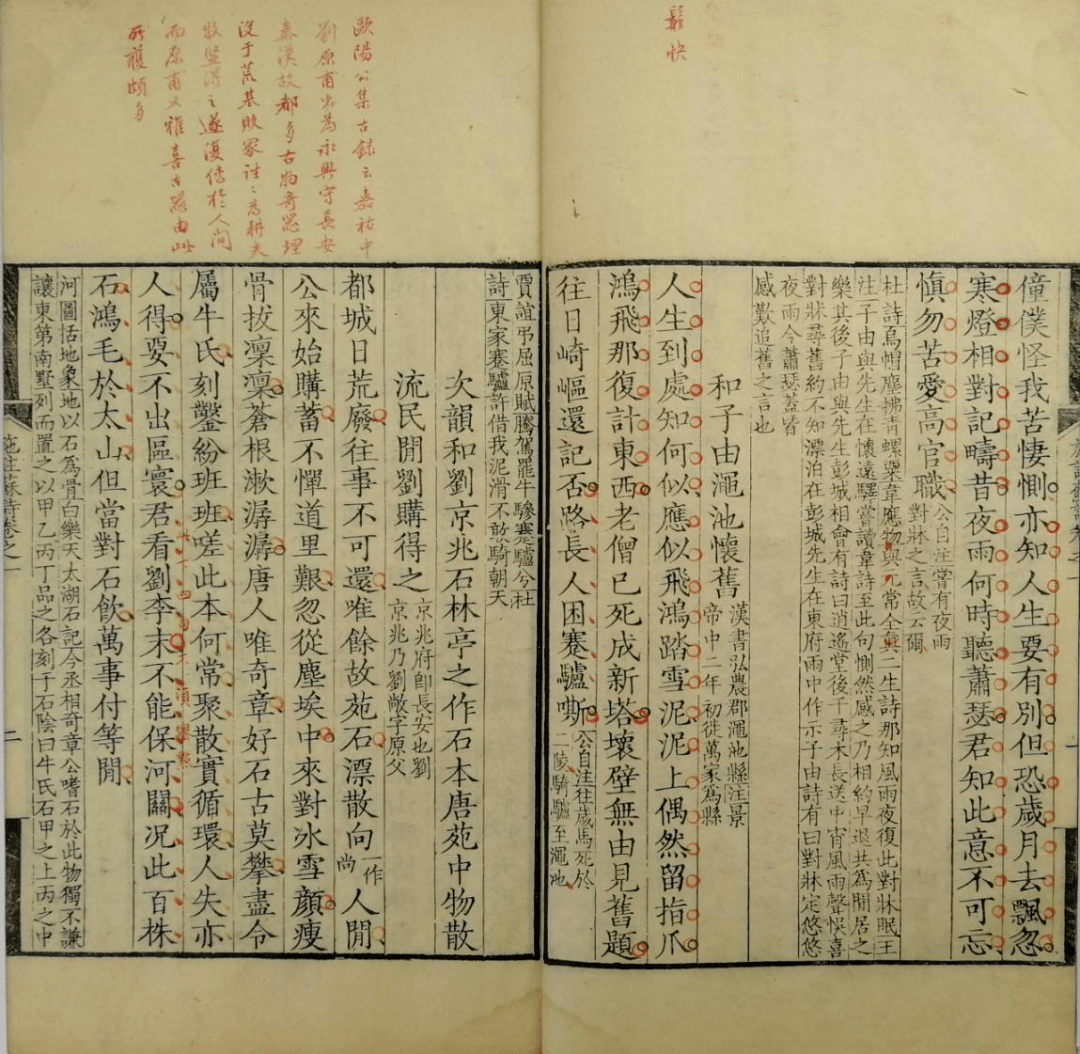 鬆快
僮僕怪我苦悽惻亦知人生要有別但恐歲月去飄忽
寒燈相對記疇昔夜雨何時聽蕭瑟君知此意不可忘
慎勿苦愛高官職公自注嘗有夜雨
對牀之言故云爾
杜詩烏帽塵拂青螺粟韋應物與元常全真二生詩那知風雨夜復此對牀眠王
注子由與先生在懷遠驛嘗讀韋詩至此句惻然感之乃相約早退共為閒居之
樂其後子由與先生彭城相會有詩曰逍遙堂後千尋木長送中宵風雨聲悞喜
對牀尋舊約不知漂泊在彭城先生在東府雨中作示子由詩有曰對牀定悠悠
夜雨今蕭瑟蓋皆
感歎追舊之言也
和子由澠池懷舊漢書弘農郡澠池縣注景
帝中二年初徙萬家為縣
人生到處知何似應似飛鴻踏雪泥泥上偶然留指爪
鴻飛那復計東西老僧已死成新塔壞壁無由見舊題
往日崎嶇還記否路長人困蹇驢嘶公自注往歲馬死於
二陵騎驢至澠池
歐陽公集古錄云嘉祐中
劉原甫出為永興守長安
秦漢故都多古物奇器埋
沒于荒基敗冢往〻為耕夫
牧豎得之遂復傳於人間
而原甫又雅喜古器由此
所獲頗多
賈誼弔屈原賦騰駕罷牛驂蹇驢兮杜
詩東家蹇驢許借我泥滑不敢騎朝天
次韻和劉京兆石林亭之作石本唐苑中物散
流民閒劉購得之京兆府即長安也劉
京兆乃劉敞字原父
都城日荒廢往事不可還唯餘故苑石漂散向一作
尚人閒
公來始購蓄不憚道里艱忽從塵埃中來對冰雪顏瘦
骨拔凜凜蒼根漱潺潺唐人唯奇章好石古莫攀盡令
屬牛氏刻鑿紛班班嗟此本何常聚散實循環人失亦
人得要不出區寰君看劉李末不能保河關況此百株
石鴻毛於太山但當對石飲萬事付等閒
河圖括地象地以石為骨白樂天太湖石記今丞相奇章公嗜石於此物獨不謙
讓東第南墅列而置之以甲乙丙丁品之各刻于石陰曰牛氏石甲之上丙之中
施註蘇詩卷之一
二